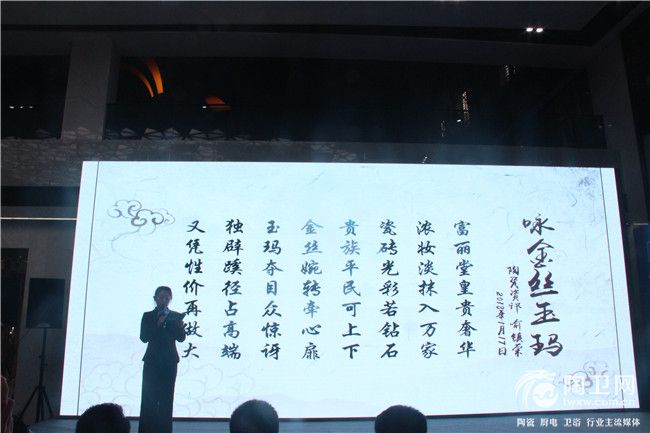 咏金丝玉玛
陶瓷资讯 俞镇荣
2018年1月17日
富丽堂皇贵奢华
浓妆淡抹入万家
瓷砖光彩若钻石
贵族平民可上下
金丝婉转牵心扉
玉玛夺目众惊讶
独辟蹊径占高端
又凭性价再做大
陶卫网
www.twxw.com.cn
陶瓷 厨电 卫浴 行业主流媒体